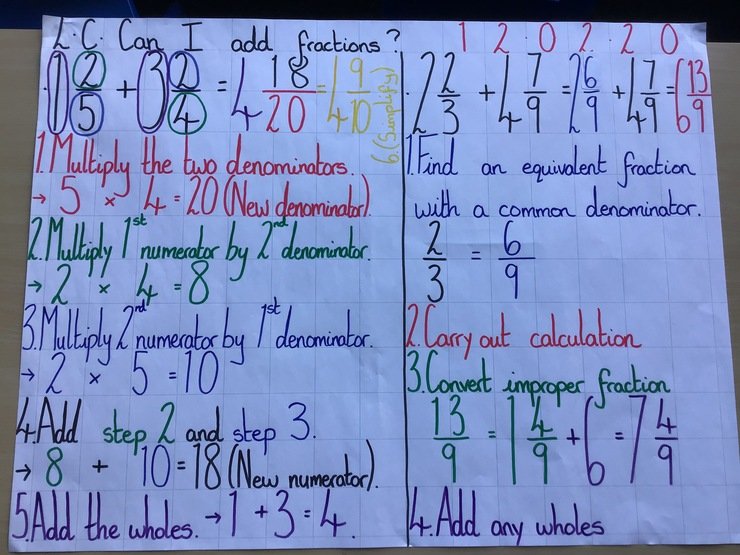 L.C. Can I add fractions? 12.02.20
1 2/5 + 3 2/4 = 4 18/20 = 4 9/10 6.(Simplify)
1. Multiply the two denominators.
→ 5 × 4 = 20 (New denominator).
2. Multiply 1st numerator by 2nd denominator.
→ 2 × 4 = 8
3. Multiply 2nd numerator by 1st denominator.
→ 2 × 5 = 10
4. Add step 2 and step 3.
→ 8 + 10 = 18 (New numerator).
5. Add the wholes. → 1 + 3 = 4.
2 2/3 + 4 7/9 = 2 6/9 + 4 7/9 = 6 13/9
1. Find an equivalent fraction
with a common denominator.
2/3 = 6/9
2. Carry out calculation
3. Convert improper fraction
13/9 = 1 4/9 + 6 = 7 4/9
4. Add any wholes